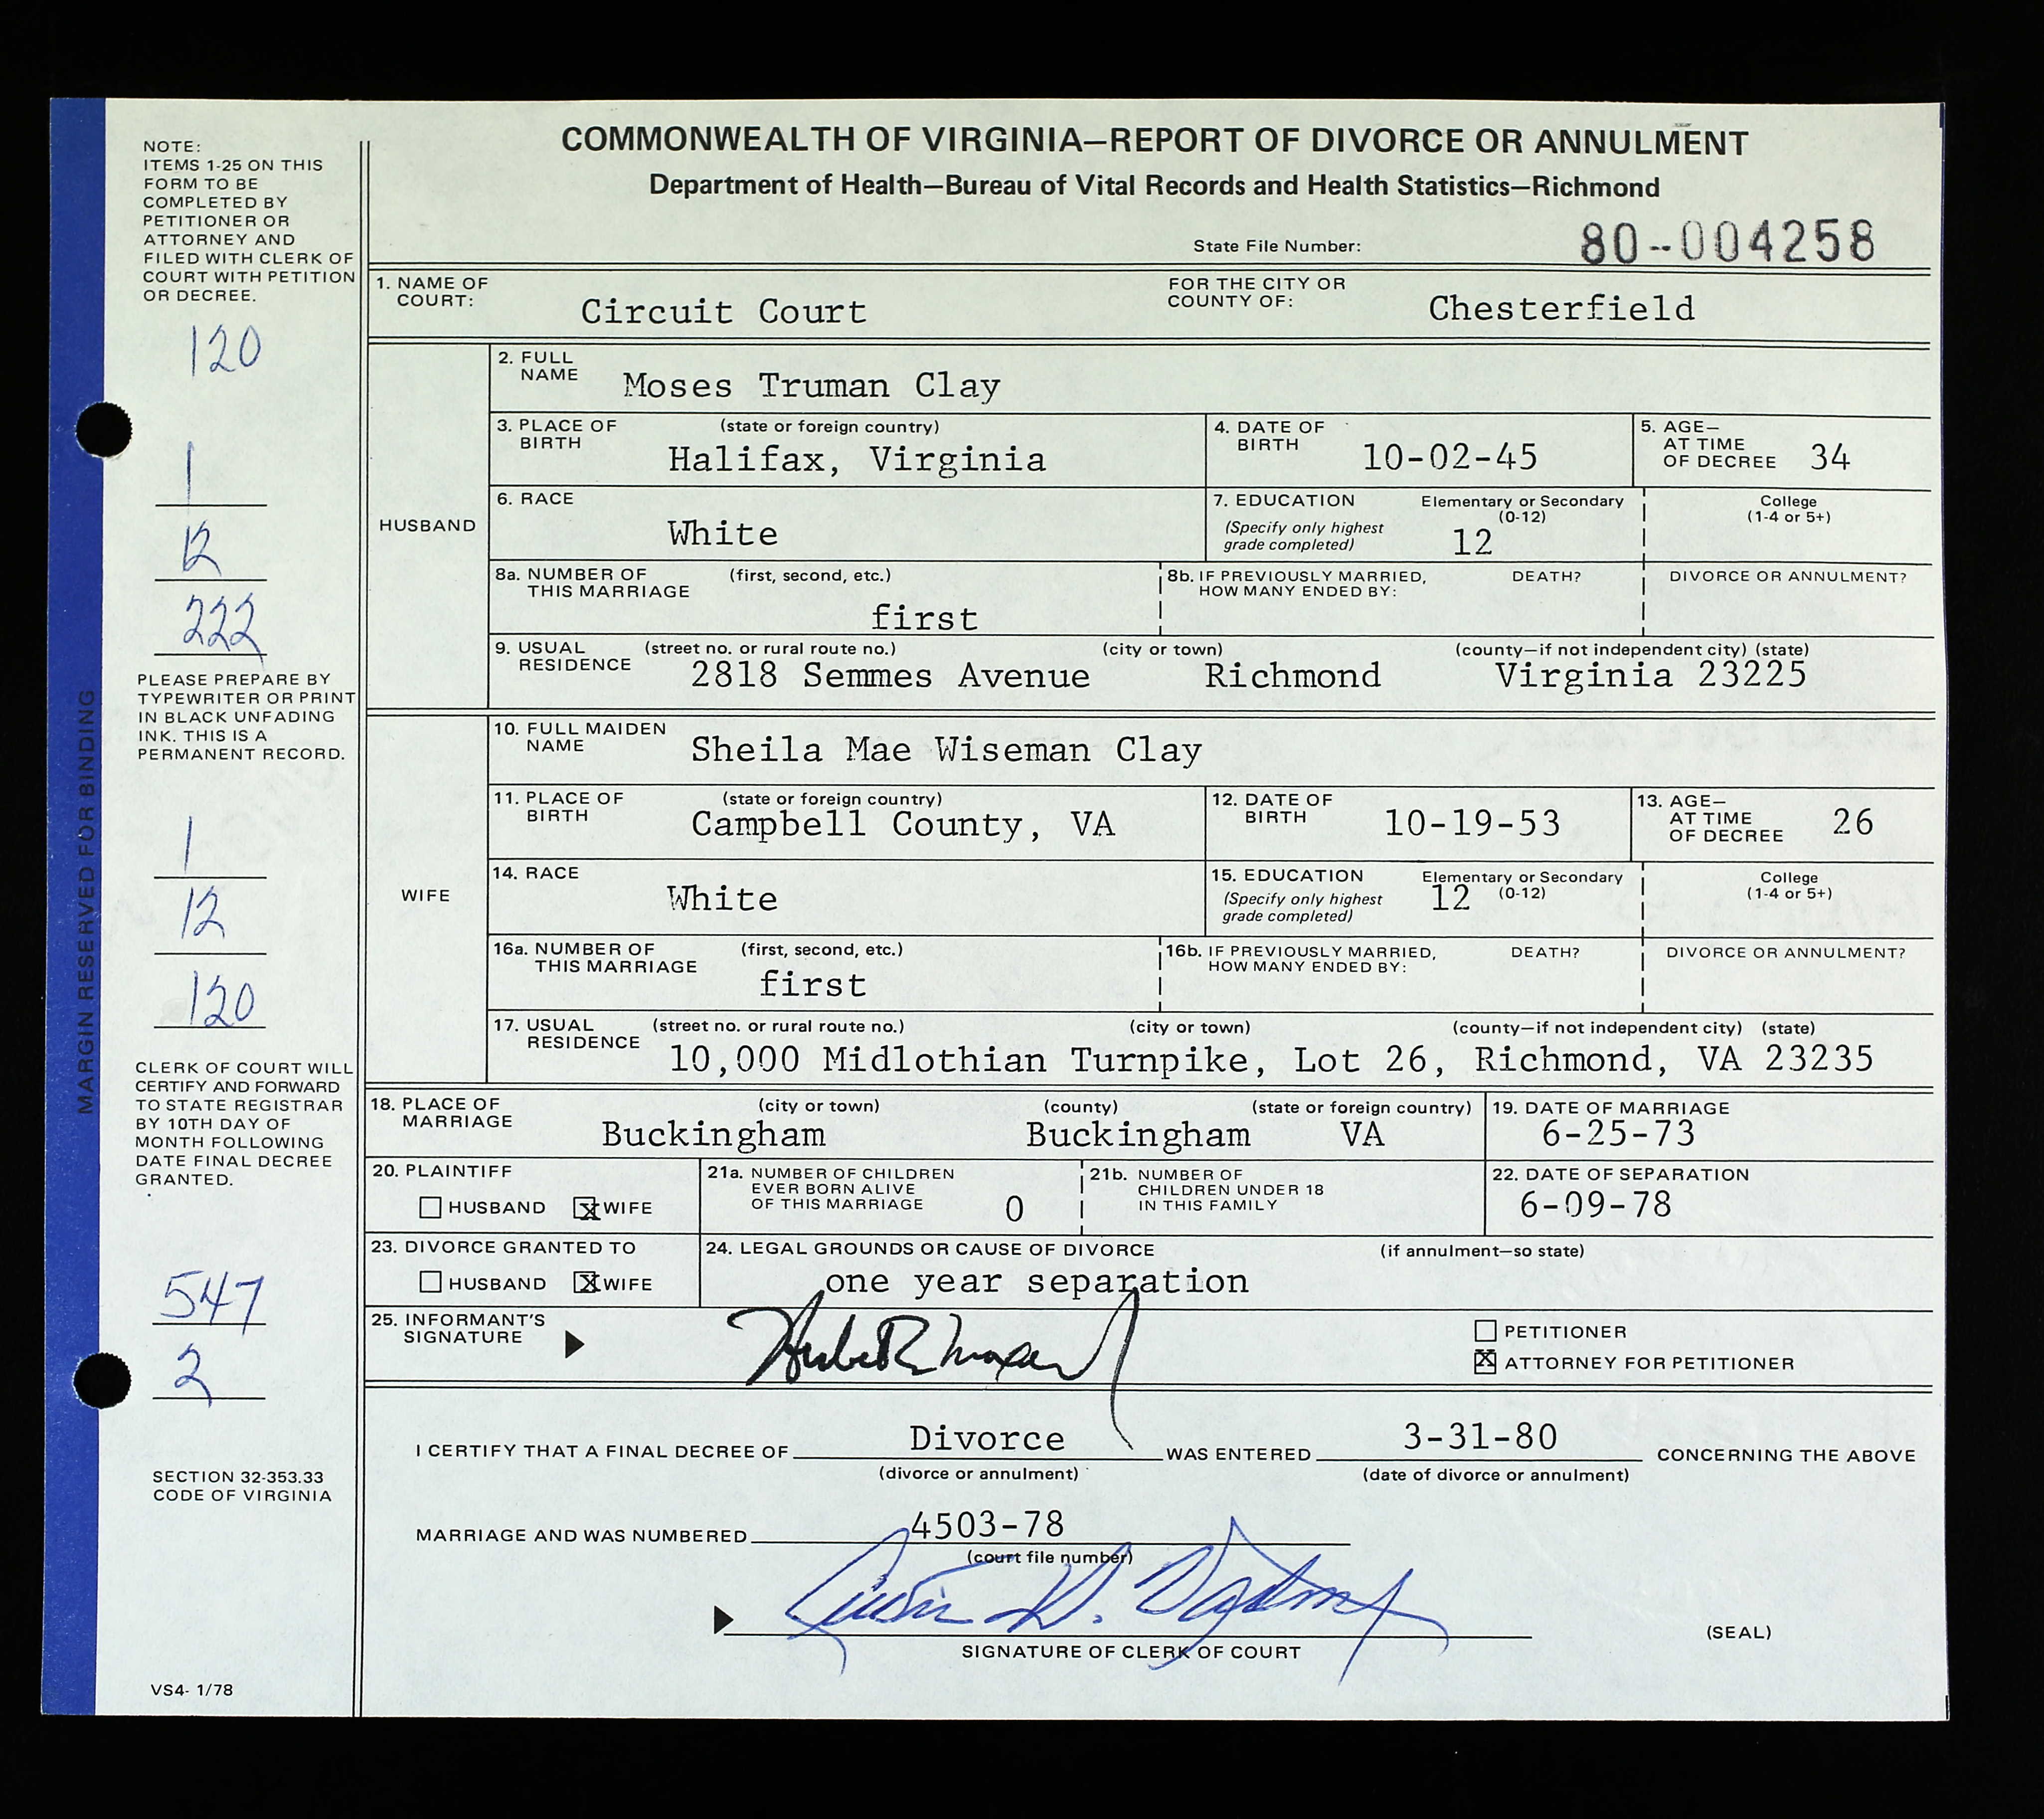 COMMONWEALTH OF VIRGINIA—REPORT OF DIVORCE OR ANNULMENT
Department of Health—Bureau of Vital Records and Health Statistics—Richmond
State File Number: 80--004258
NOTE:
ITEMS 1-25 ON THIS
FORM TO BE
COMPLETED BY
PETITIONER OR
ATTORNEY AND
FILED WITH CLERK OF
COURT WITH PETITION
OR DECREE.
120
1
12
222
PLEASE PREPARE BY
TYPEWRITER OR PRINT
IN BLACK UNFADING
INK. THIS IS A
PERMANENT RECORD.
1
12
120
CLERK OF COURT WILL
CERTIFY AND FORWARD
TO STATE REGISTRAR
BY 10TH DAY OF
MONTH FOLLOWING
DATE FINAL DECREE
GRANTED.
547
2
SECTION 32-353.33
CODE OF VIRGINIA
VS4- 1/78
MARGIN RESERVED FOR BINDING
1. NAME OF COURT: Circuit Court FOR THE CITY OR COUNTY OF: Chesterfield
HUSBAND
2. FULL NAME Moses Truman Clay
3. PLACE OF BIRTH (state or foreign country) Halifax, Virginia
4. DATE OF BIRTH 10-02-45
5. AGE— AT TIME OF DECREE 34
6. RACE White
7. EDUCATION (Specify only highest grade completed) Elementary or Secondary (0-12) 12 College (1-4 or 5+)
8a. NUMBER OF THIS MARRIAGE (first, second, etc.) first
8b. IF PREVIOUSLY MARRIED, HOW MANY ENDED BY: DEATH? DIVORCE OR ANNULMENT?
9. USUAL RESIDENCE (street no. or rural route no.) (city or town) (county—if not independent city) (state)
2818 Semmes Avenue Richmond Virginia 23225
WIFE
10. FULL MAIDEN NAME Sheila Mae Wiseman Clay
11. PLACE OF BIRTH (state or foreign country) Campbell County, VA
12. DATE OF BIRTH 10-19-53
13. AGE— AT TIME OF DECREE 26
14. RACE White
15. EDUCATION (Specify only highest grade completed) Elementary or Secondary (0-12) 12 College (1-4 or 5+)
16a. NUMBER OF THIS MARRIAGE (first, second, etc.) first
16b. IF PREVIOUSLY MARRIED, HOW MANY ENDED BY: DEATH? DIVORCE OR ANNULMENT?
17. USUAL RESIDENCE (street no. or rural route no.) (city or town) (county—if not independent city) (state)
10,000 Midlothian Turnpike, Lot 26, Richmond, VA 23235
18. PLACE OF MARRIAGE (city or town) (county) (state or foreign country)
Buckingham Buckingham VA
19. DATE OF MARRIAGE
6-25-73
20. PLAINTIFF
HUSBAND X WIFE
21a. NUMBER OF CHILDREN EVER BORN ALIVE OF THIS MARRIAGE 0
21b. NUMBER OF CHILDREN UNDER 18 IN THIS FAMILY
22. DATE OF SEPARATION
6-09-78
23. DIVORCE GRANTED TO
HUSBAND X WIFE
24. LEGAL GROUNDS OR CAUSE OF DIVORCE (if annulment—so state)
one year separation
25. INFORMANT'S SIGNATURE
PETITIONER
X ATTORNEY FOR PETITIONER
I CERTIFY THAT A FINAL DECREE OF Divorce WAS ENTERED 3-31-80 CONCERNING THE ABOVE
(divorce or annulment) (date of divorce or annulment)
MARRIAGE AND WAS NUMBERED 4503-78
(court file number)
SIGNATURE OF CLERK OF COURT
(SEAL)